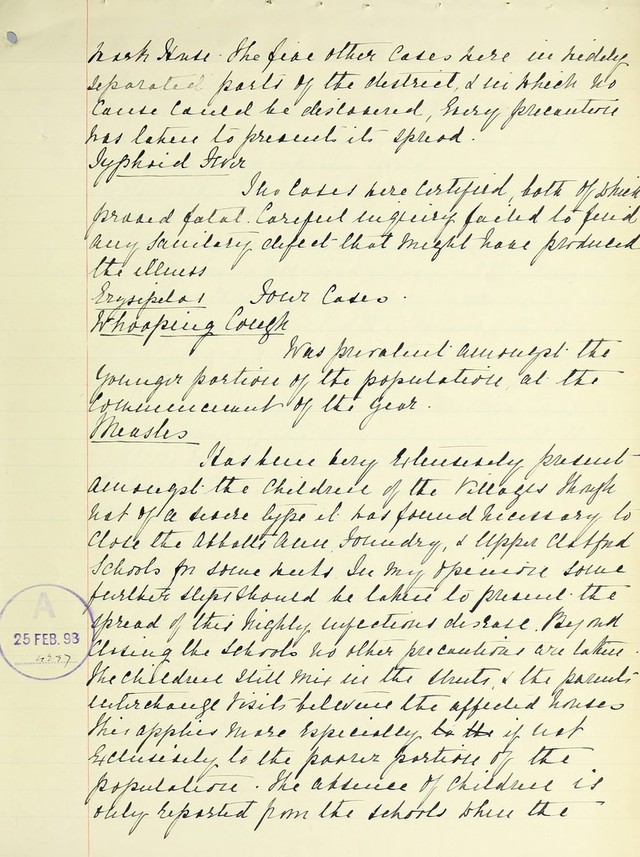 Work House. The five other Cases were in widely
separated parts of the district, & in which no
cause could be discovered, Every precaution
was taken to prevent its spread.
Typhoid Fever
Two Cases were Certified, both of which
proved fatal. Careful inquiry failed to find
any Sanitary defect that might have produced
the illness
Erysipelas Four Cases.
Whooping Cough
Was prevalent amongst the
younger portion of the population, at the
Commencement of the Year.
Measles
Has been very Extensively present
amongst the Children of the Villages Though
not of a severe type it was found necessary to
Close the Abbotts Ann, Foundry, & Upper Clatford
Schools for some weeks. In my opinion some
further steps should be taken to prevent the
spread of this highly infectious disease. Beyond
Closing the Schools no other precautions are taken.
The Children still mix in the streets, & the parents
interchange Visits between the affected houses
This applies more Especially to the if not
Exclusively to the poorer portion of the
population. The absence of Children is
only reported from the schools when the
A
25 FEB. 93